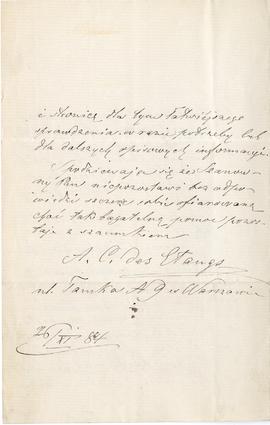 i stronicę dla tym łatwiejszego
sprawdzenia w razie potrzeby lub
dla dalszych spisowych informacyi.
Spodziewając się że Szanow-
ny Pan nie pozostawi bez odpo-
wiedzi szczerze sobie ofiarowaną
choć tak bagatelną pomoc pozo-
staję z szacunkiem
A. C. des Etangs
ul. Tamka № 9 w Warszawie
26/XI 84